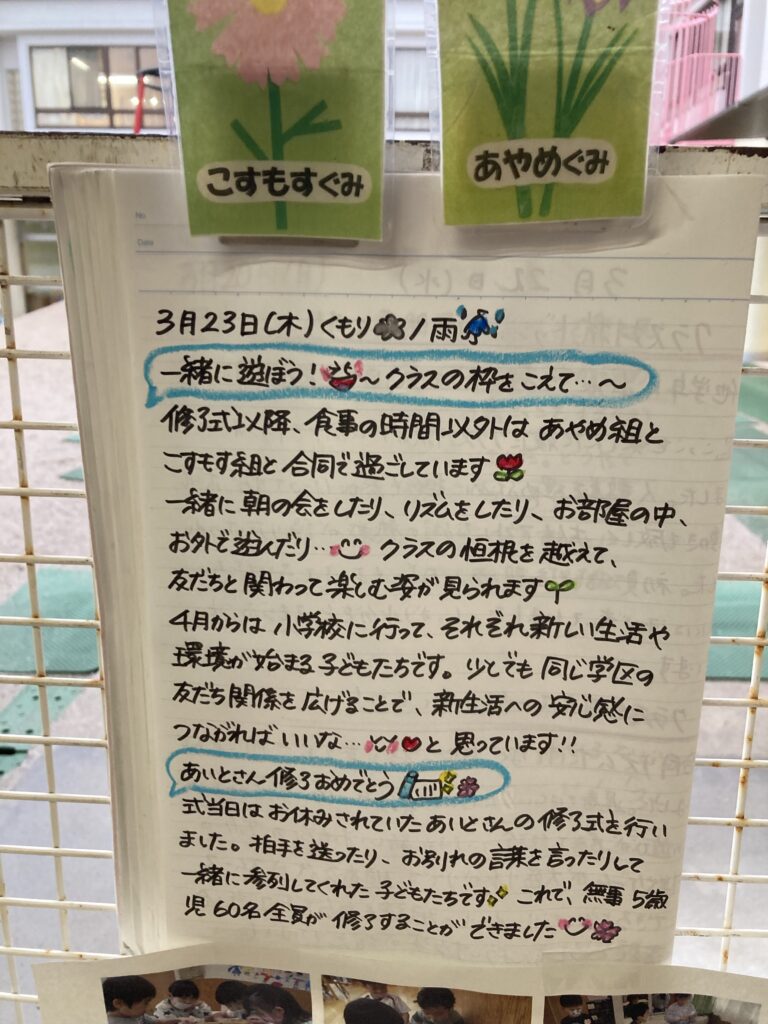 こすもすぐみ
あやめぐみ
No.
Date
3月22日(水)
3月23日(木)くもり/雨
一緒に遊ぼう!～クラスの枠をこえて…～
修了式以降、食事の時間以外は あやめ組と
こすもす組と 合同で過ごしています
一緒に 朝の会をしたり、リズムをしたり、お部屋の中、
お外で遊んだり… クラスの垣根を越えて、
友だちと関わって楽しむ姿が見られます
4月からは 小学校に行って、それぞれ新しい生活や
環境が始まる子どもたちです。少しでも 同じ学区の
友だち関係を広げることで、新生活への 安心感に
つながればいいな… と 思っています!!
あいとさん修了おめでとう
式当日は お休みされていた あいとさんの 修了式を行い
ました。拍手を送ったり、お別れの言葉を言ったりして
一緒に参列してくれた 子どもたちです これで、無事 5歳
児 60名 全員が 修了することが できました